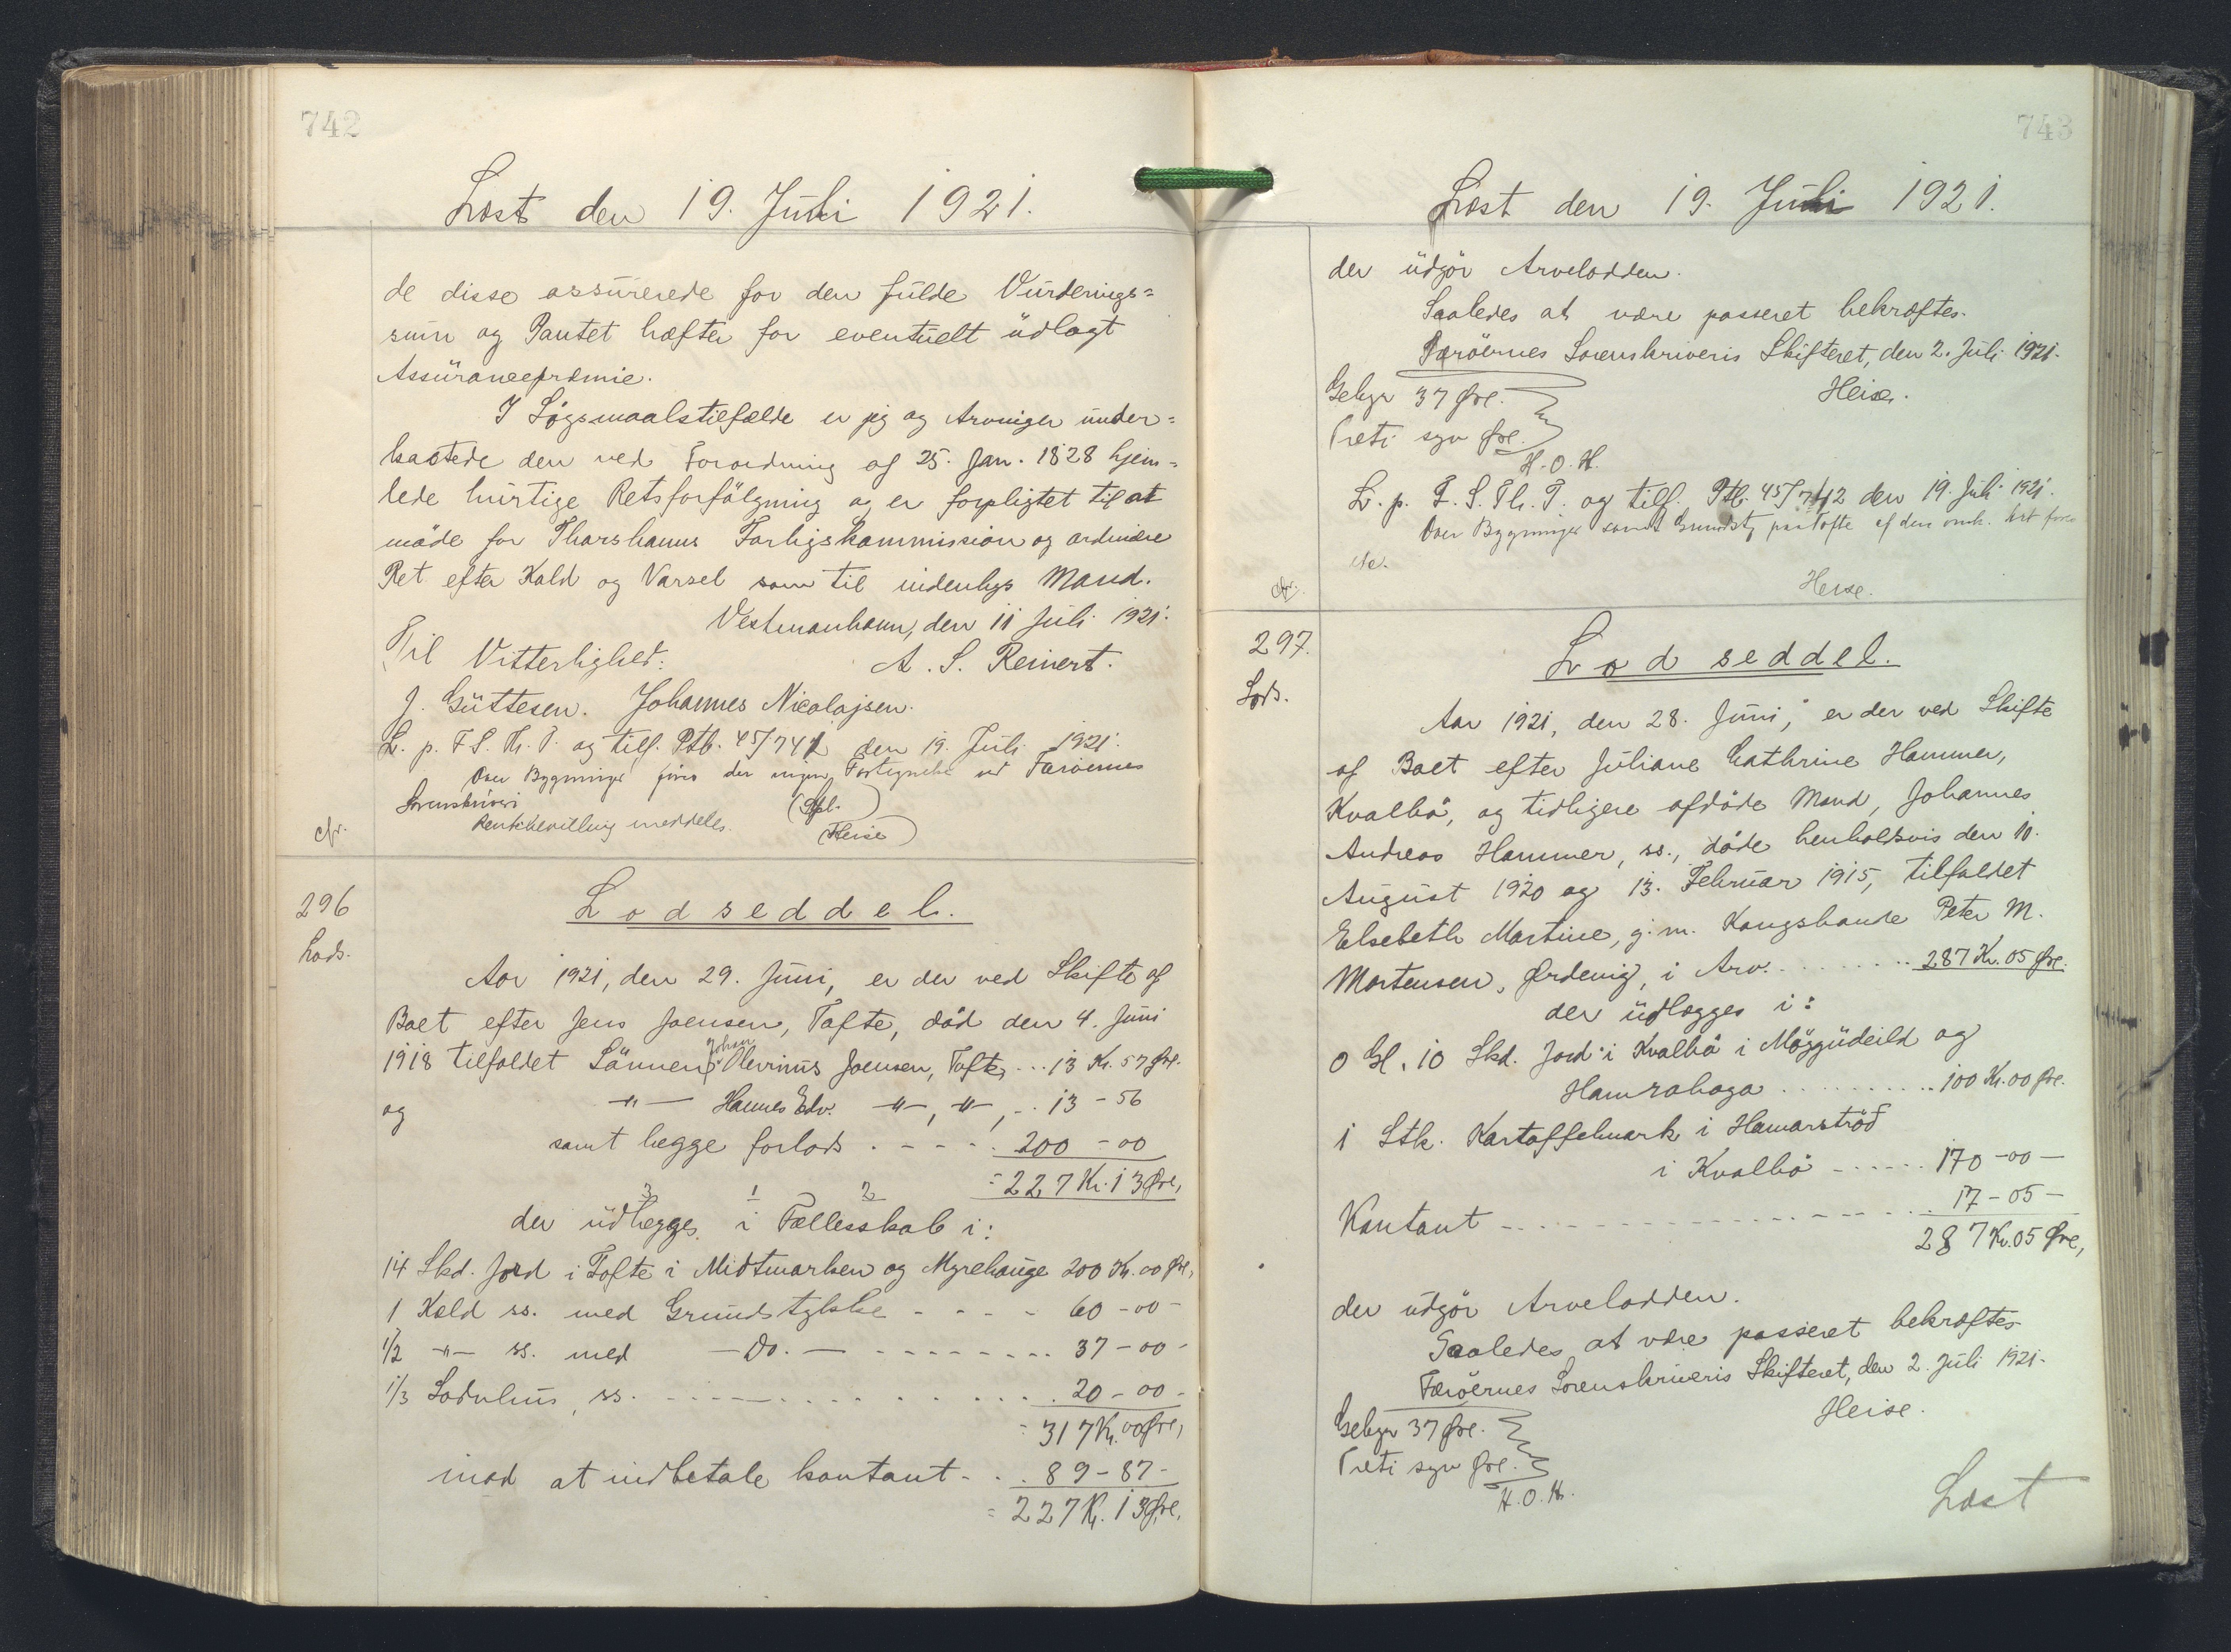 742
Læst den 19. Juli 1921.
de disse assurerede for den fulde Vurderings=
sum og Pantet hæfter for eventuelt udlagt
Assurancepræmie.
I Søgsmaalstilfælde er jeg og Arvinger under=
kastede den ved Forordning af 25. Jan. 1828 hjem=
lede hurtige Retsforfølgning og er forpligtet til at
møde for Thorshavns Forligskommission og ordinære
Ret efter Kald og Varsel som til indenbys Mand.
Vestmanhavn, den 11 Juli 1921.
Til Vitterlighed: A. S. Reinert.
J. Guttesen. Johannes Nicolajsen.
L. p. F. S. Th. T. og tilf. Ptb. 45/742 den 19. Juli 1921.
Over Bygninger føres der ingen Fortegnelse ved Færøernes
Sorenskriveri
Rentebevilling meddeles. Heise
cfr.
296
Lods.
Lodseddel.
Aar 1921, den 29. Juni, er der ved Skifte af
Boet efter Jens Joensen, Tofte, død den 4. Juni
1918 tilfaldet Sønnen, Johan Olevinus Joensen, Tofte, ... 13 Kr. 57 Øre.
og -"- Hannes Edv. -"-, -"-, .. 13 - 56
samt begge forlods . - - - . 200 - 00
= 227 Kr. 13 Øre,
3 1 2
der udlægges i Fællesskab i:
14 Skd. Jord i Tofte i Midtmarken og Myrehauge 200 Kr. 00 Øre,
1 Kæld ss. med Grundstykke - - - - 60 - 00 -
1/2 -"- ss. med - Do. - - - - - - 37 - 00 -
1/3 Sodnhus, ss. - - - . . . . . 20 - 00 -
= 317 Kr. 00 Øre,
mod at indbetale kontant - . . 89 - 87 -
= 227 Kr. 13 Øre.
743
Læst den 19. Juli 1921.
der udgør Arvelodden.
Saaledes at være passeret bekræftes.
Færøernes Sorenskriveris Skifteret, den 2. Juli 1921.
Gebyr 37 Øre. Heise.
Treti syv Øre.
H. O. H.
L. p. F. S. Th. T. og tilf. Ptb. 45/742 den 19. Juli 1921.
Over Bygninger samt Grundst. paa Tofte
Heise.
cfr.
297.
Lods.
Lodseddel.
Aar 1921, den 28. Juni, er der ved Skifte
af Boet efter Juliane Cathrine Hammer,
Kvalbø, og tidligere afdøde Mand, Johannes
Andreas Hammer, ss., døde henholdsvis den 10.
August 1920 og 13. Februar 1915, tilfaldet
Elsebeth Martine, g. m. Kongsbonde Peter M.
Mortensen, Ørdevig, i Arv. . . . . . . 287 Kr. 05 Øre.
der udlægges i:
0 Gl. 10 Skd. Jord i Kvalbø i Møggudeild og
Hamrahaga . . . . . . . . . . 100 Kr. 00 Øre.
1 Stk. Kartoffelmark i Hamarströð
i Kvalbø - . . . . . 170 - 00 -
Kontant - . . . . . . . . . . 17 - 05 -
287 Kr. 05 Øre,
der udgør Arvelodden.
Saaledes at være passeret bekræftes
Færøernes Sorenskriveris Skifteret, den 2. Juli 1921.
Gebyr 37 Øre. Heise.
Treti syv Øre.
H. O. H.
Læst